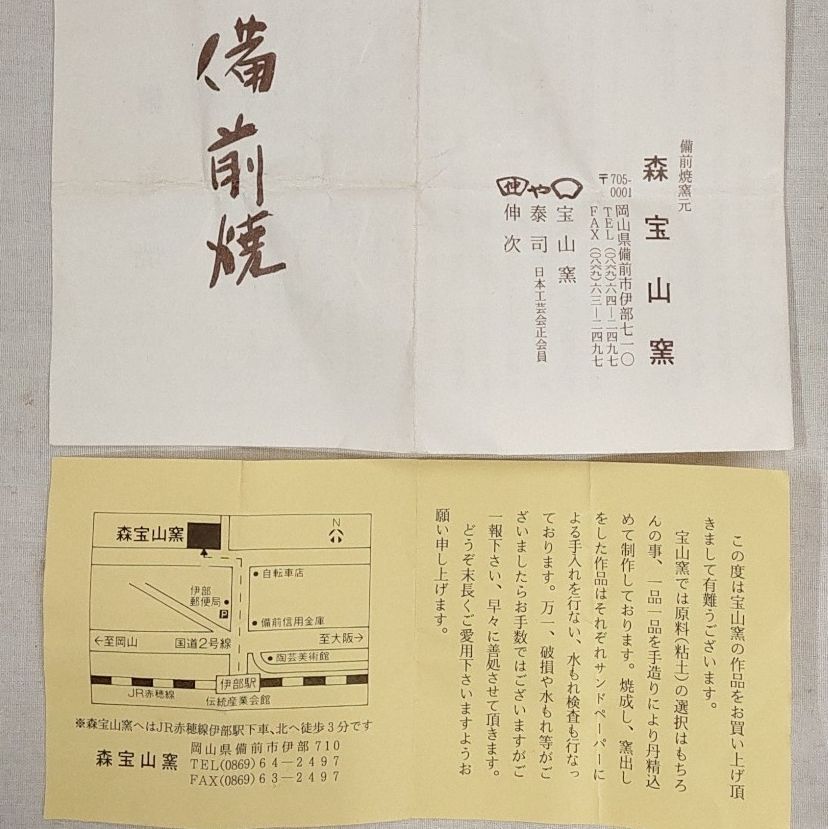 備前焼
備前焼窯元
森宝山窯
〒705-0001
岡山県備前市伊部七一〇
TEL(〇八六九)六四ー二四九七
FAX(〇八六九)六三ー二四九七
宝山窯
や 泰司 日本工芸会正会員
伸 伸次
この度は宝山窯の作品をお買い上げ頂
きまして有難うございます。
宝山窯では原料(粘土)の選択はもちろ
んの事、一品一品を手造りにより丹精込
めて制作しております。焼成し、窯出し
をした作品はそれぞれサンドペーパーに
よる手入れを行ない、水もれ検査も行なっ
ております。万一、破損や水もれ等がご
ざいましたらお手数ではございますがご
一報下さい、早々に善処させて頂きます。
どうぞ末長くご愛用下さいますようお
願い申し上げます。
森宝山窯
N
自転車店
伊部
郵便局
P
備前信用金庫
←至岡山 国道2号線 至大阪→
陶芸美術館
伊部駅
JR赤穂線
伝統産業会館
※森宝山窯へはJR赤穂線伊部駅下車、北へ徒歩3分です
森宝山窯
岡山県備前市伊部710
TEL(0869)64－2497
FAX(0869)63－2497